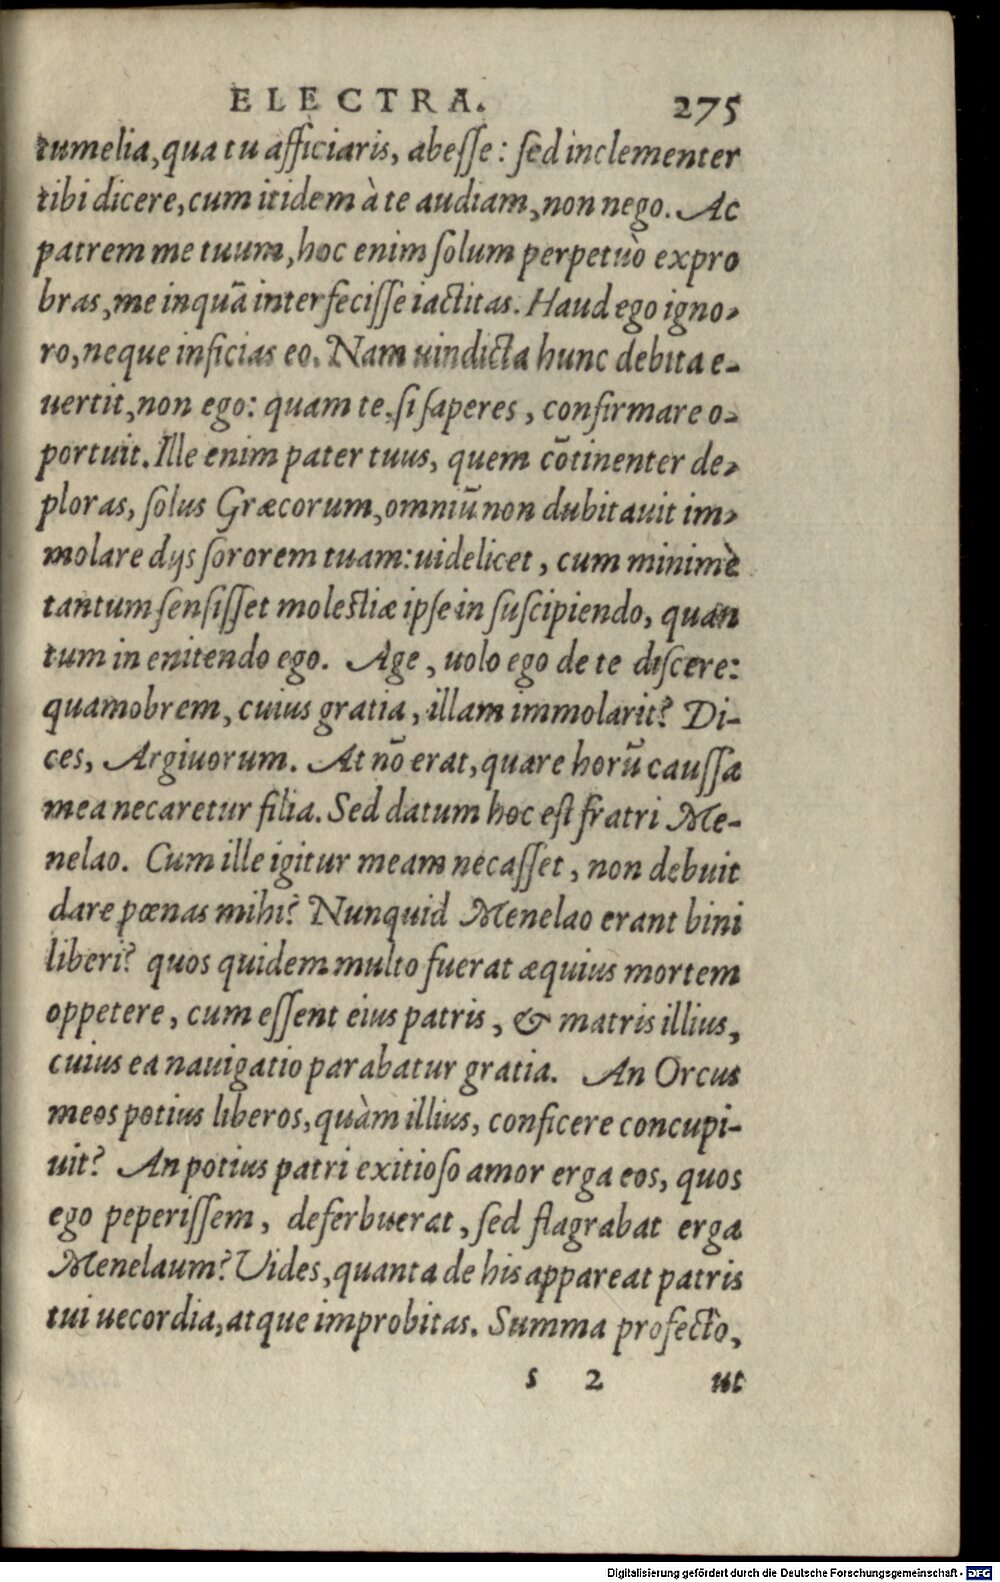 ELECTRA. 275
tumelia, qua tu afficiaris, abesse: sed inclementer
tibi dicere, cum itidem à te audiam, non nego. Ac
patrem me tuum, hoc enim solum perpetuò expro
bras, me inquã interfecisse iactitas. Haud ego igno-
ro, neque inficias eo. Nam uindicta hunc debita e-
uertit, non ego: quam te, si saperes, confirmare o-
portuit. Ille enim pater tuus, quem cõtinenter de-
ploras, solus Græcorum, omniũ non dubitauit im-
molare dijs sororem tuam: uidelicet, cum minimè
tantum sensisset molestiæ ipse in suscipiendo, quan
tum in enitendo ego. Age, uolo ego de te discere:
quamobrem, cuius gratia, illam immolarit? Di-
ces, Argiuorum. At nõ erat, quare horũ caussa
mea necaretur filia. Sed datum hoc est fratri Me-
nelao. Cum ille igitur meam necasset, non debuit
dare pœnas mihi? Nunquid Menelao erant bini
liberi? quos quidem multo fuerat æquius mortem
oppetere, cum essent eius patris, & matris illius,
cuius ea nauigatio parabatur gratia. An Orcus
meos potius liberos, quàm illius, conficere concupi-
uit? An potius patri exitioso amor erga eos, quos
ego peperissem, deferbuerat, sed flagrabat erga
Menelaum? Uides, quanta de his appareat patris
tui uecordia, atque improbitas. Summa profectò,
s 2 ut
Digitalisierung gefördert durch die Deutsche Forschungsgemeinschaft - DFG